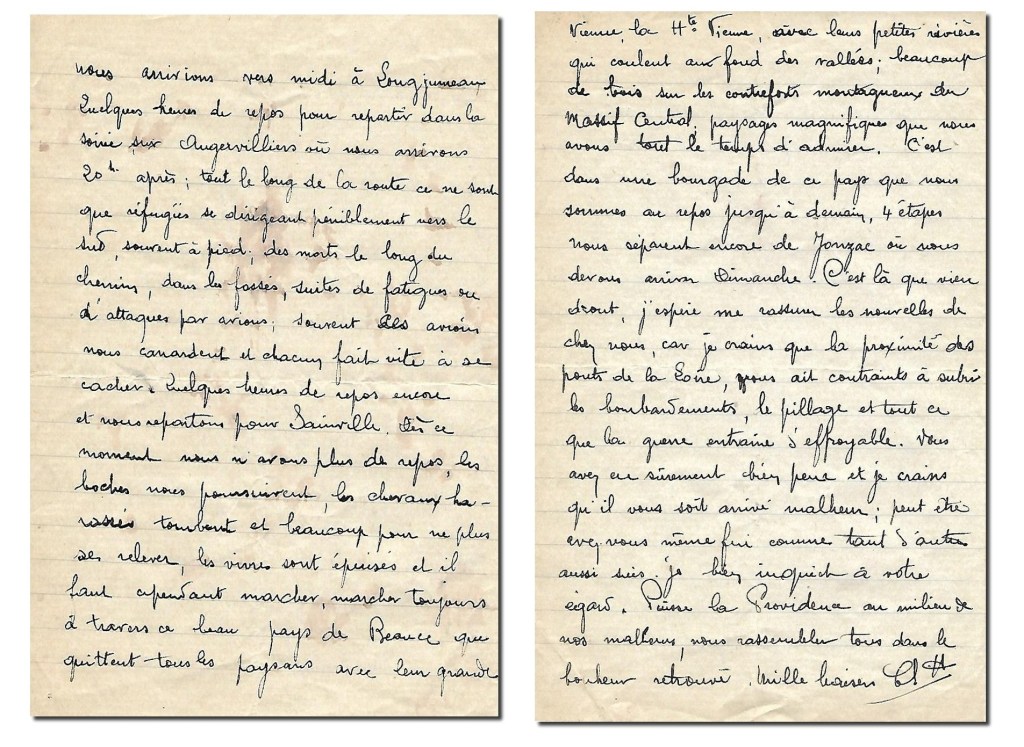 nous arrivions vers midi à Longjumeau
Quelques heures de repos pour repartir dans la
soirée sur Angervilliers où nous arrivons
20h après ; tout le long de la route ce ne sont
que réfugiés se dirigeant péniblement vers le
sud, souvent à pied, des morts le long du
chemin, dans les fossés, suites de fatigues ou
d'attaques par avions ; souvent les avions
nous canardent et chacun fait vite à se
cacher. Quelques heures de repos encore
et nous repartons pour Sainville. Dès ce
moment nous n'avons plus de repos, les
boches nous poursuivent, les chevaux ha-
rassés tombent et beaucoup pour ne plus
se relever, les vivres sont épuisés et il
faut cependant marcher, marcher toujours
à travers ce beau pays de Beauce que
quittent tous les paysans avec leur grande
Vienne, la Hte Vienne, avec leurs petites rivières
qui coulent au fond des vallées ; beaucoup
de bois sur les contreforts montagneux du
Massif Central, paysages magnifiques que nous
avons tout le temps d'admirer. C'est
dans une bourgade de ce pays que nous
sommes au repos jusqu'à demain, 4 étapes
nous séparent encore de Jonzac où nous
devons arriver Dimanche. C'est là que vien
dront, j'espère me rassurer les nouvelles de
chez nous, car je crains que la proximité des
ponts de la Loire, vous ait contraints à subir
les bombardements, le pillage et tout ce
que la guerre entraine d'effroyable. Vous
avez eu sûrement bien peur et je crains
qu'il vous soit arrivé malheur ; peut être
avez vous même fui comme tant d'autres
aussi suis-je bien inquiet à votre
égard. Puisse la Providence au milieu de
nos malheurs, nous rassembler tous dans le
bonheur retrouvé. Mille baisers